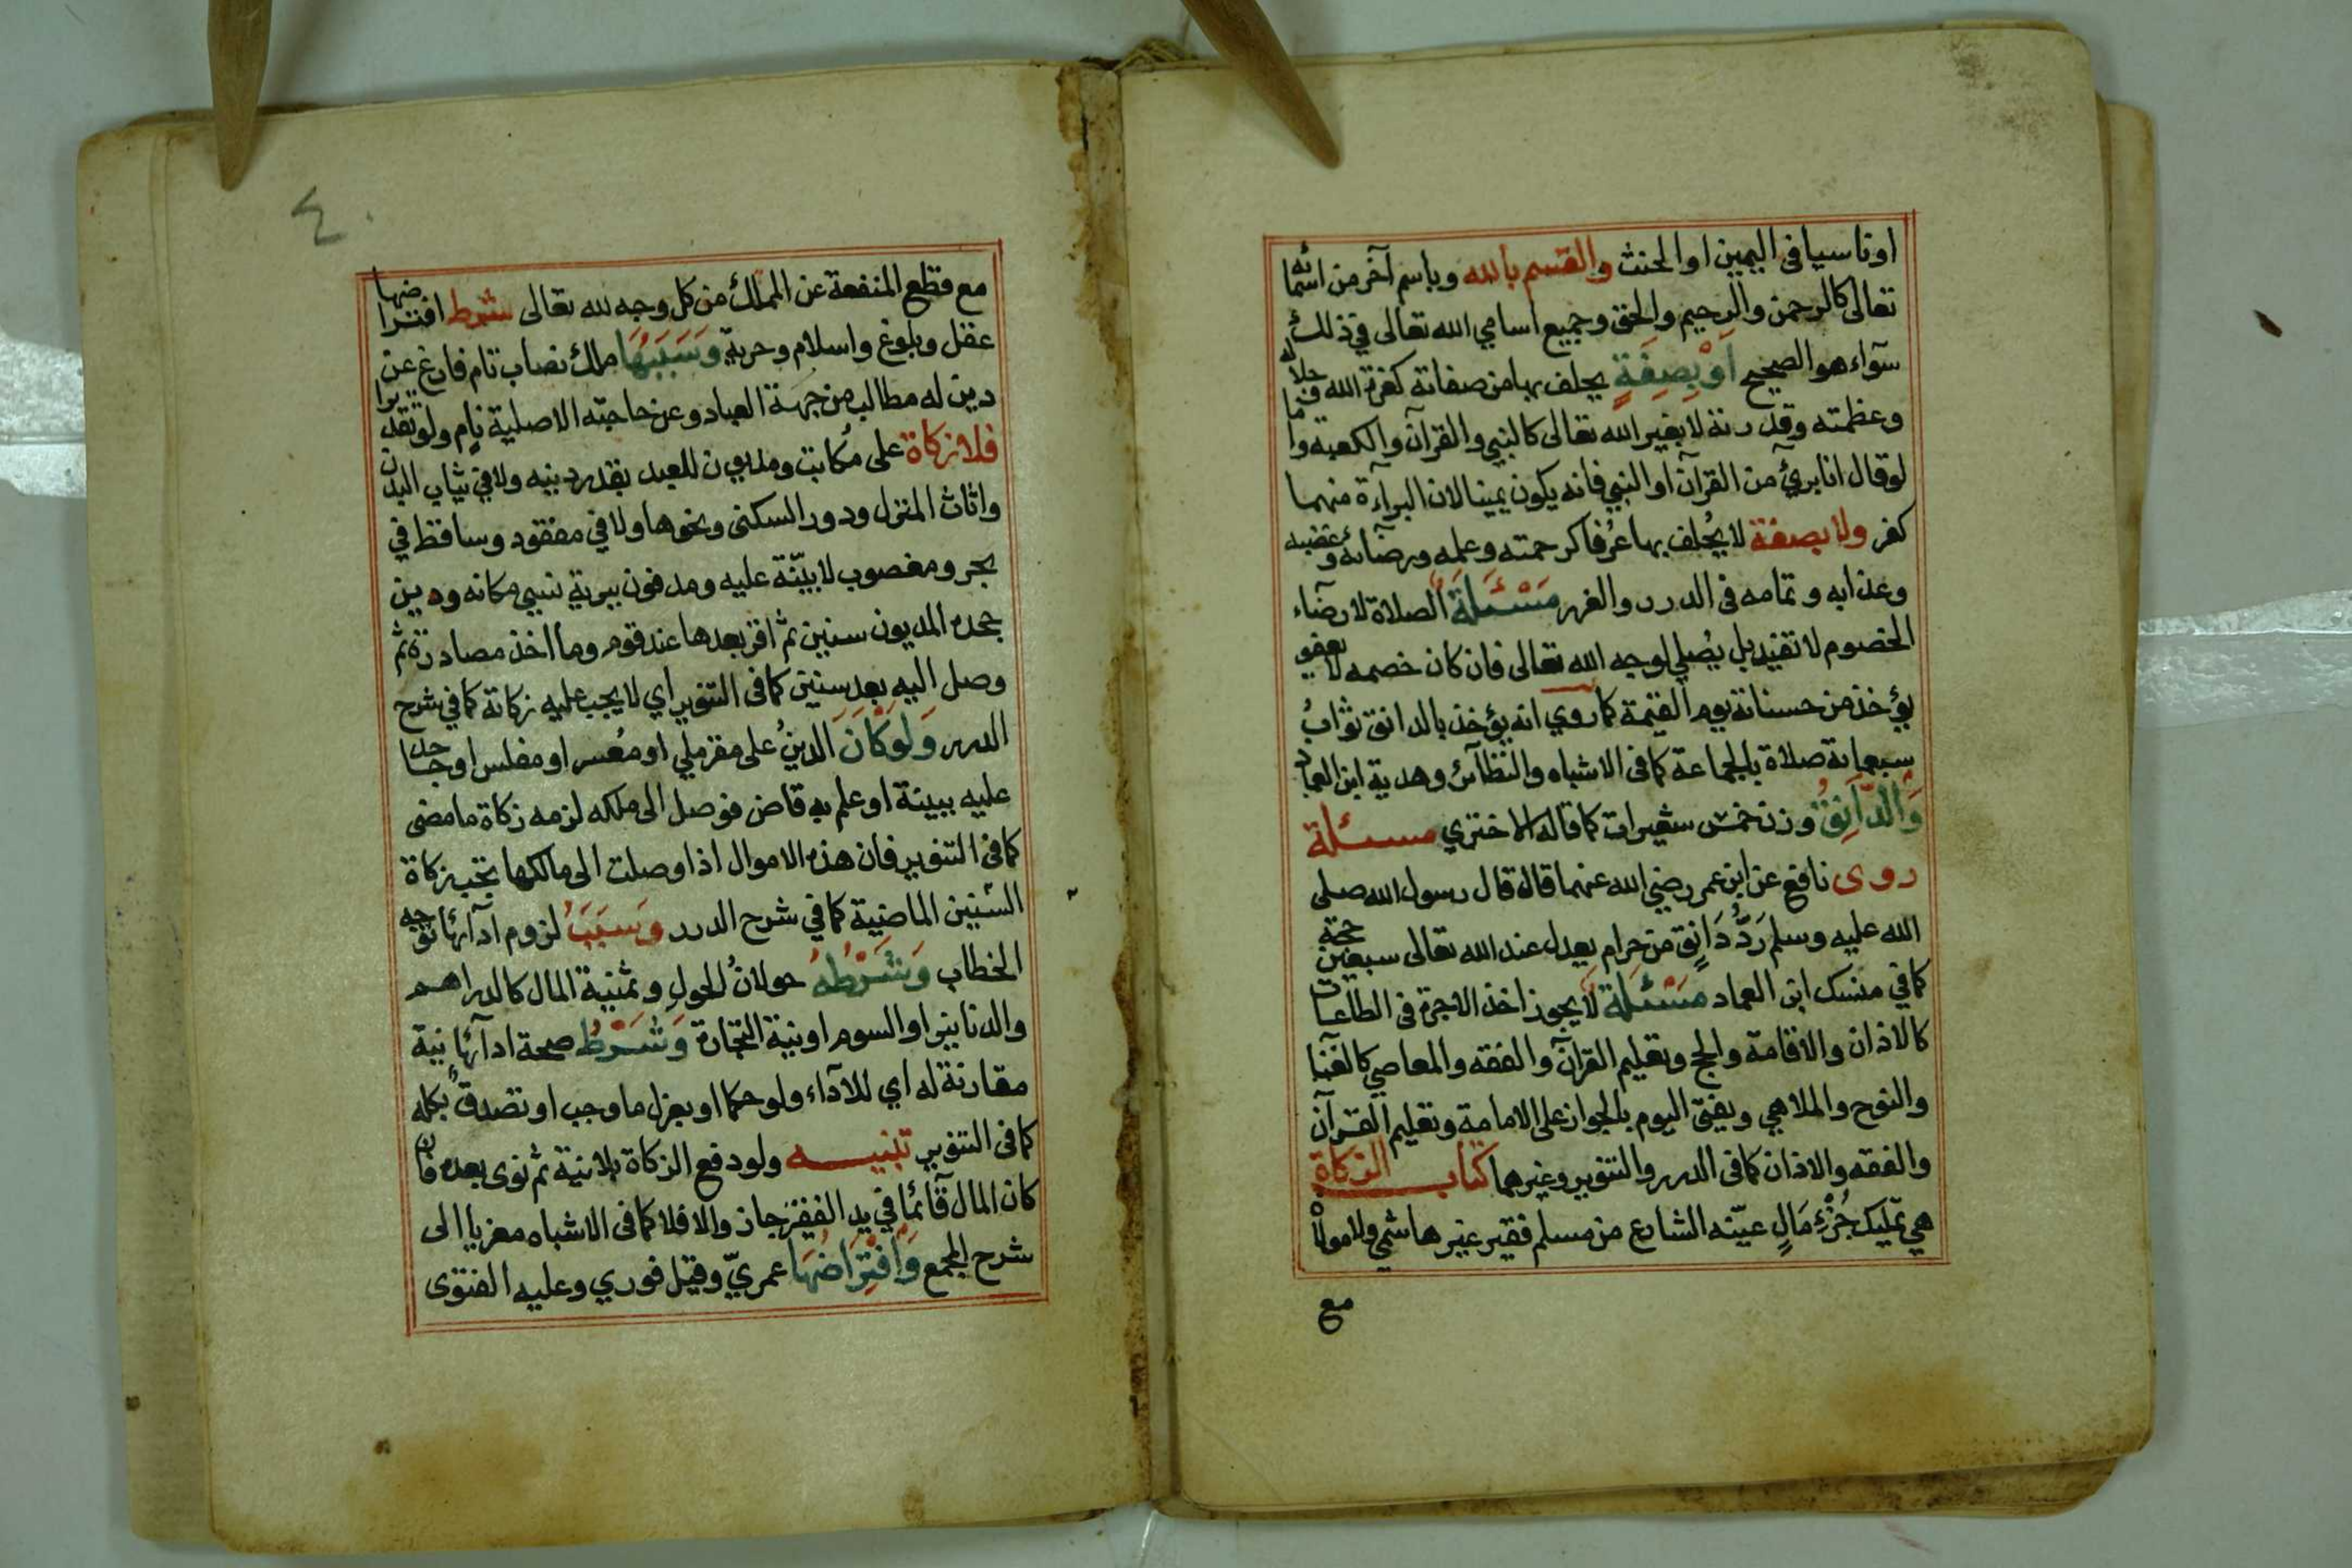 اوناسيا فى اليمين او الحنث والقسم بالله وباسم آخر من اسمائه
تعالى كالرحمن والرحيم والحق وجميع اسامي الله تعالى في ذلك
سوآء هو الصحيح اَوْ بِصِفَةٍ يحلف بها من صفاته كعزة الله وجلاله
وعظمته وقدرته لا بغير الله تعالى كالنبي والقرآن والكعبة واما
لو قال انا برئ من القرآن او النبي فانه يكون يمينا لان البرآءة منهما
كفر ولا بصفة لا يُحلف بها عُرفا كرحمته وعلمه ورضآئه وغضبه
وعذابه وتمامه فى الدرر والغرر مَسْئَلَةٌ الصلاة لارضآء
الخصوم لا تفيد بل يُصلي لوجه الله تعالى فان كان خصمه لا يعفو
يؤخذ من حسناته يوم القيمة كما روي انه يؤخذ بالدانق ثوابُ
سبعمائة صلاة بالجماعة كما فى الاشباه والنظآئر وهدية ابن العماد
وَالدَّانِقُ وزن خمس شعيرات كما قاله الاختري مسئلة
روى نافع عن ابن عمر رضي الله عنهما قال قال رسول الله صلى
الله عليه وسلم رَدُّ دَانِقٍ من حرام يعدل عند الله تعالى سبعين حجة
كما في منسك ابن العماد مَسْئَلَة لا يجوز اخذ الاجرة فى الطاعات
كالاذان والاقامة والحج وتعليم القرآن والفقه والمعاصي كالغنآ
والنوح والملاهي ويفتى اليوم بالجواز على الامامة وتعليم القرآن
والفقه والاذان كما فى الدرر والتنوير وغيرهما كتاب الزكاة
هي تمليك جُزْءِ مَالٍ عيّنه الشارع من مسلم فقير غير هاشمي ولا مولاه
مع
٤٠
مع قطع المنفعة عن المملك من كل وجه لله تعالى شرط افتراضها
عقل وبلوغ واسلام وحرية وَسَبَبُهَا ملك نصاب تام فارغ عن
دين له مطالب من جهة العباد وعن حاجته الاصلية نامٍ ولو تقديرا
فلا زكاة على مكاتب ومديون للعبد بقدر دينه ولا في ثياب البدن
واثاث المنزل ودور السكنى ونحوها ولا في مفقود وساقط في
بحر ومغصوب لا بيّنة عليه ومدفون ببرية نسي مكانه ودين
جحده المديون سنين ثم اقر بعدها عند قوم وما اخذ مصادرة ثم
وصل اليه بعد سنين كما فى التنوير اي لا يجب عليه زكاته كما في شرح
الدرر وَلَوْ كَانَ الدينُ على مقر ملي او مُعسر او مفلس او جاحد
عليه ببينة او علم به قاض فوصل الى ملكه لزمه زكاة ما مضى
كما فى التنوير فان هذه الاموال اذا وصلت الى مالكها تجب زكاة
السّنين الماضية كما في شرح الدرر وَسَبَبُ لزوم ادآئها توجه
الخطاب وَشَرْطُهُ حولانُ الحولِ وثمنية المال كالدراهم
والدنانير او السوم او نية التجارة وَشَرْطُ صحة ادآئها نية
مقارنة له اي للاداء ولو حكما او بعزل ما وجب او تصدق بكله
كما فى التنوير تنبيه ولو دفع الزكاة بلا نية ثم نوى بعده فان
كان المال قآئما في يد الفقير جاز والا فلا كما فى الاشباه معزيا الى
شرح المجمع وَافْتِرَاضُهَا عمريّ وقيل فوري وعليه الفتوى